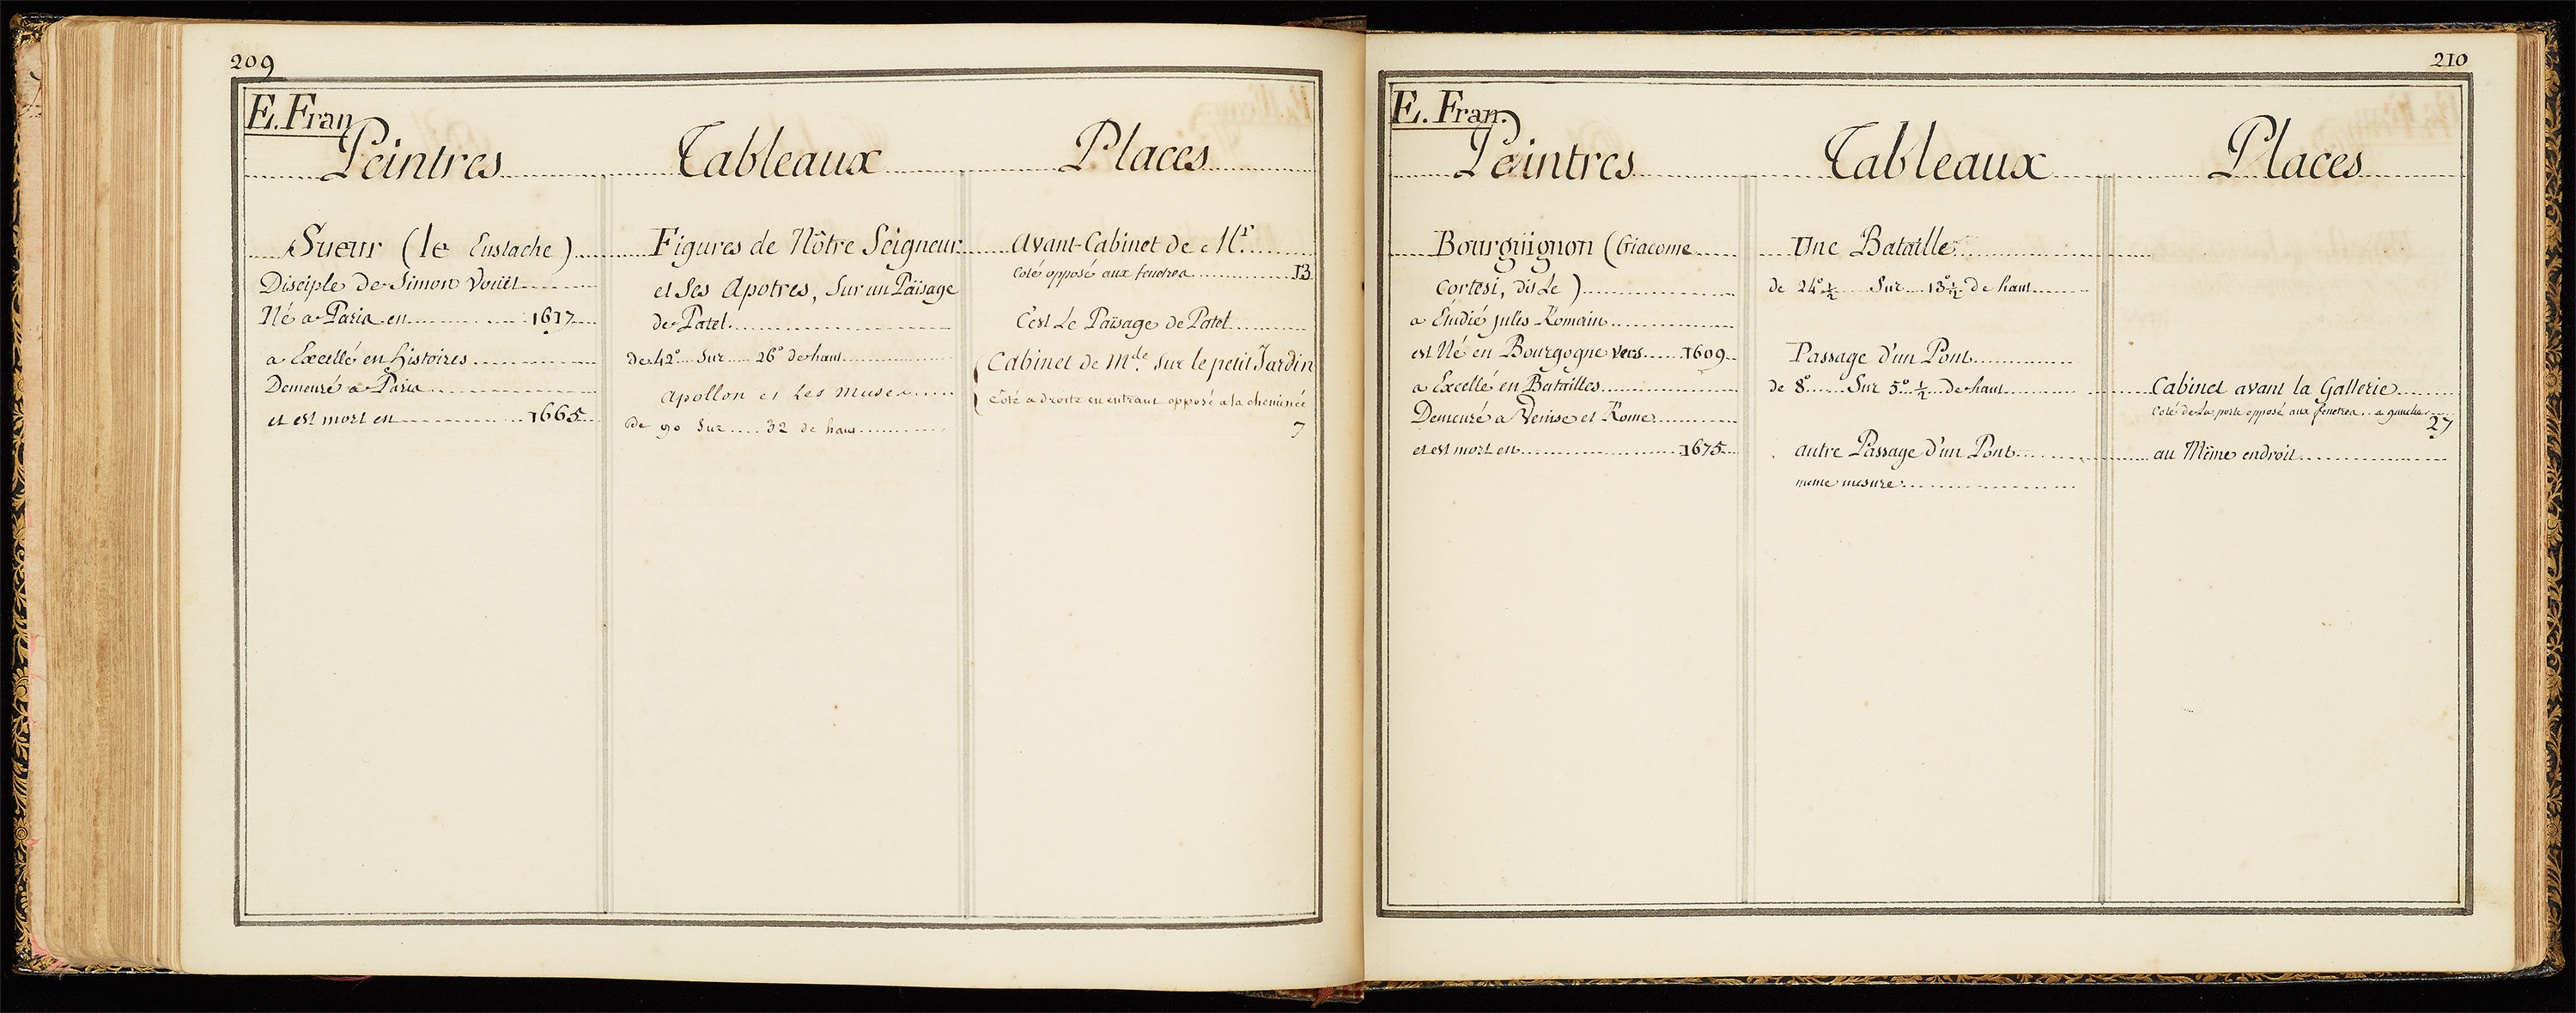 209
E. Fran
Peintres Tableaux Places
Sueur (le Eustache)
Disciple de Simon Vouët
Né a Paris en 1617
a Excellé en histoires
Demeuré a Paris
et est mort en 1665
Figures de Nôtre Seigneur
et Ses Apotres, Sur un Païsage
de Patel
de 42° Sur 26° de haut
Apollon et Les Muses
De 90 Sur 32 de haut
Avant-Cabinet de Mr.
Coté opposé aux fenetres 13
C'est Le Païsage de Patel
Cabinet de Mde. Sur le petit Jardin
Côté a droite en entrant opposé a la cheminée
7
210
E. Fran.
Peintres Tableaux Places
Bourguignon (Giacome
Cortesi, dit Le)
a Etudié jules Romain
est Né en Bourgogne vers 1609
a Excellé en Batailles
Demeuré a Venise et Rome
et est mort en 1675
Une Bataille
de 24° ½ Sur 13° ½ de haut
Passage d'un Pont
de 8° Sur 5° ½ de haut
autre Passage d'un Pont
meme mesure
Cabinet avant la Gallerie
Coté de La porte opposé aux fenetres a gauche
27
au Même endroit